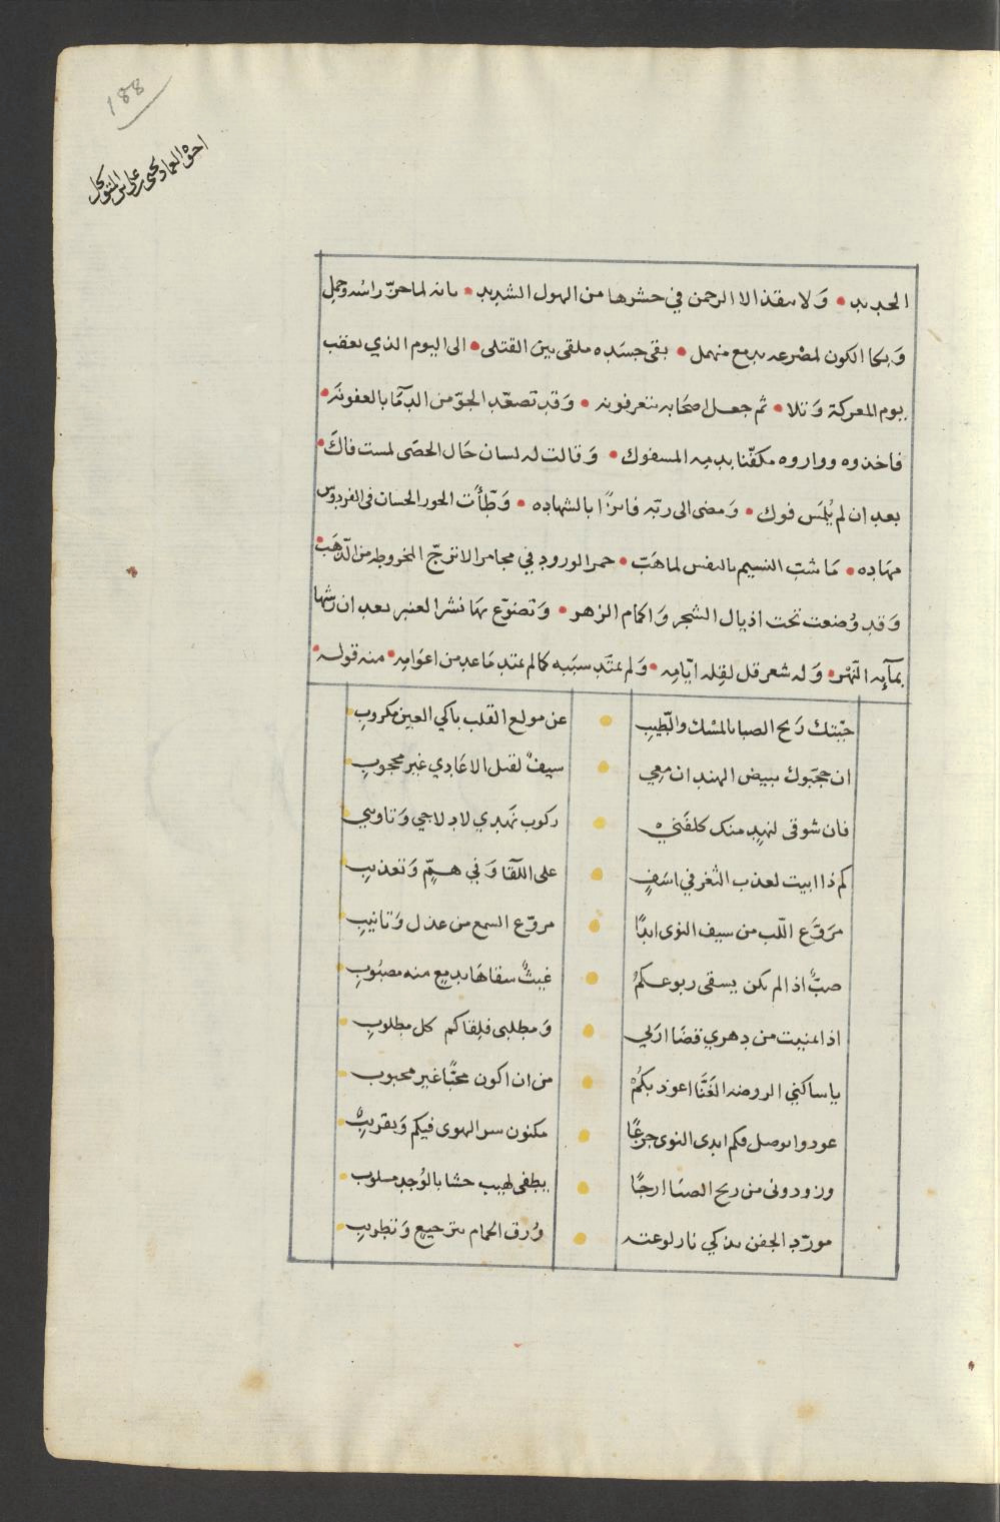 188
اخوه العماد يحيى بن علي بن المتوكل
الحديد • وَلا ينقذ الا الرحمن في حشرها من الهول الشديد • بانه لما حزّ راسُه وحمل
وَبكا الكون لمصرعه بدمع منهمل • بقى جسَده ملقى بين القتلى • الى اليوم الذي يعقب
يوم المعركة وَتلا • ثم جعل اصحَابه يتعرفونه • وَقد تصعّد الجوّ من الدمَآ بالعفونَه •
فاخذوه وواروه مكفّنا بدمه المسفوك • وَقالت له لسان حَال الحصَى لمست فاكَ •
بعد ان لم يُلمَس فوك • وَمضى الى ربّه فائزًا بالشهاده • وَوَطّأَت الحور الحسان في الفردوس
مهَاده • مَا شتِ النسيم بالنفس لما هَبّ • حمر الورود في مجامر الاترجّ المخروطه من الذّهَب •
وَقد وُضعت تحت اذيال الشجر وَاكمام الزهر • وَتضوّع بهَا نشر العنبر بعد ان رشها
بمآئه النّهَر • وَله شعر قل لقِله ايّامِه • وَلم يمتَدّ سبَبه كما لم يمتد مَا عد من اعوَامِه • منه قوله •
حيّتك رَيح الصبا بالمسْك والطّيبِ • عن مولع القلب باكي العين مكروبِ
ان حجّبوك ببيض الهند ان معِي • سيفٌ لقتل الاعَادي غير محجوبِ
فان شوقى لنهدٍ منك كلفَني • ركوب نَهدي لادلاجي وَتاويبي
كم ذا ابيت لعذب الثغر في اسَفٍ • على اللقَا وَفي همٍّ وَتعذيبِ
مرَوَّع اللّب من سيف النوى ابدًا • مروّع السمع من عذل وَتانيبِ
صبٌّ اذا لم يكن يسقى ربوعكمُ • غيثٌ سقاهَا بدمع منه مصبُوبِ
اذا منيت من دهري قضَا اربي • وَمطلبى فلِقاكم كل مطلوبِ
يا ساكني الروضه الغَنَّا اعوذ بكمُ • من ان اكون محبًّا غير محبوب
عودوا بوصل فكم ابدى النوى جزعًا • مكنون سر الهوى فيكم وَتقريبِ
وزودونى من ريح الصبَا ارجًا • يطفى لهيب حشا بالوُجد مسلوب
مورّد الجفن يذكي نار لوعته • وُرق الحمام بترجيع وَتطريبِ